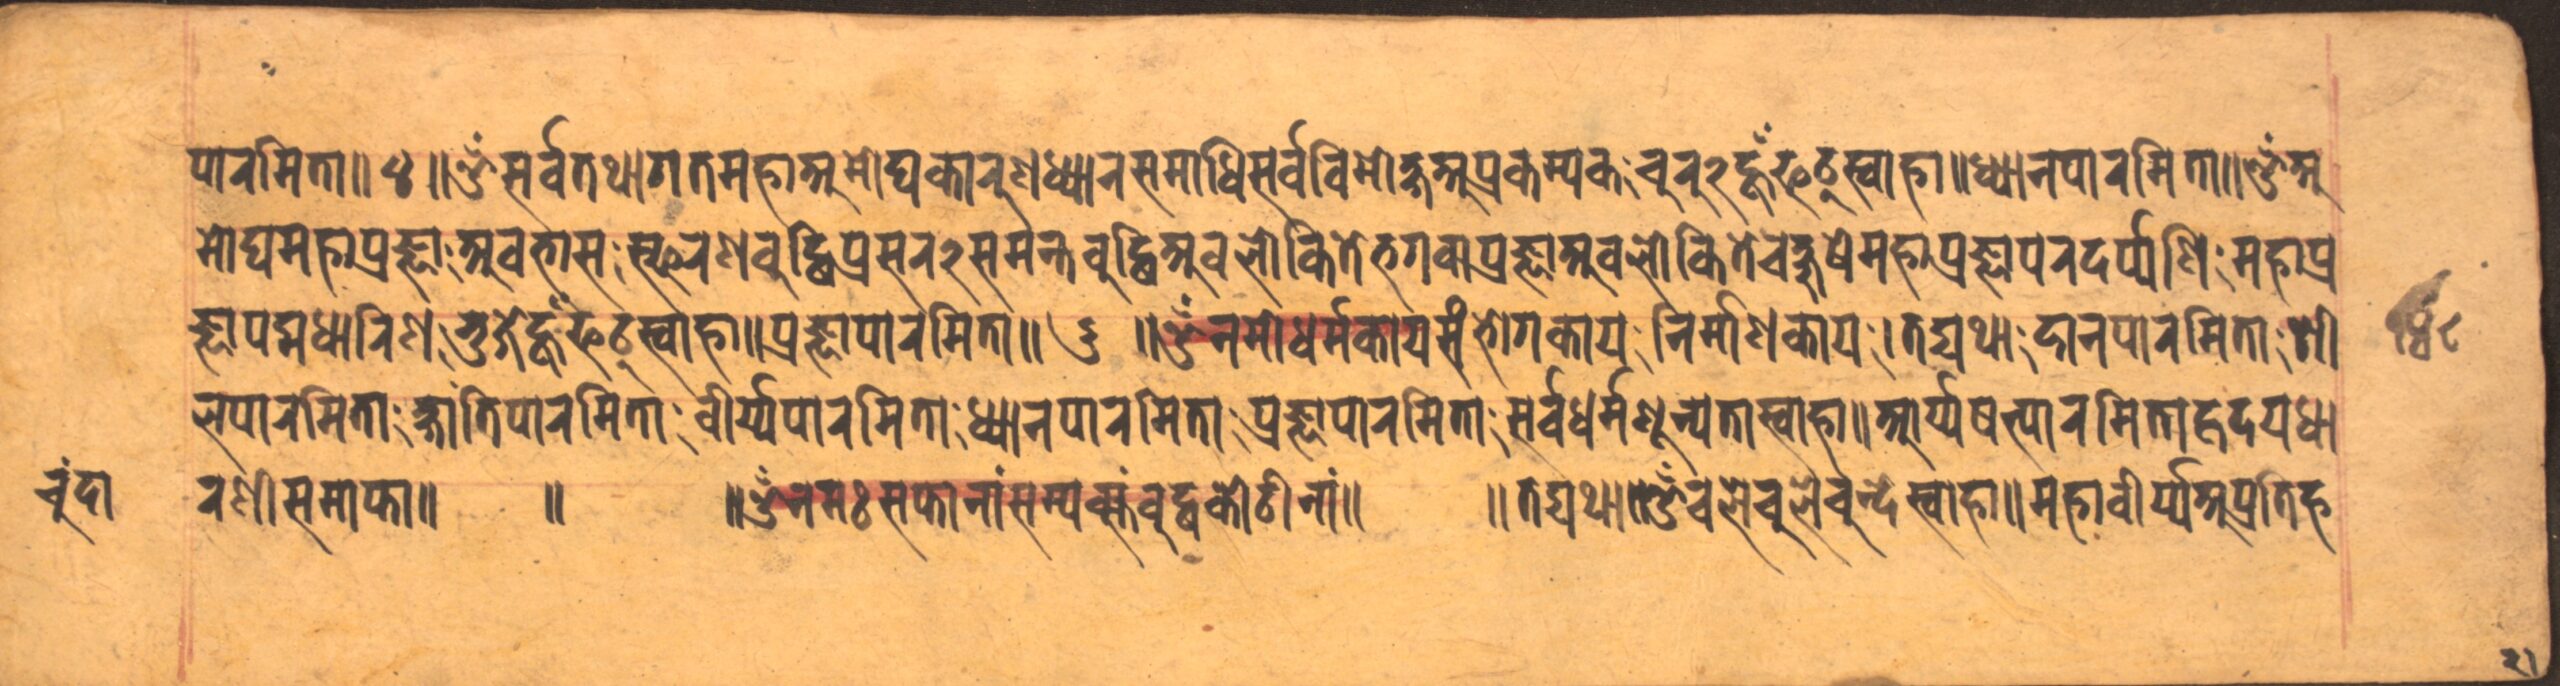 पारमिता॥ ४ ॥ॐसर्वतथागतमहाअमोघकारुणध्यानसमाधिसर्वविमोक्षअप्रकम्पकः चुरु२हूँफट्स्वाहा॥ध्यानपारमिता॥ॐअ
मोघमहाप्रज्ञाः अवभासः स्फुरणबुद्धिप्रसर२समन्तबुद्धिअवलोकितेभगवाप्रज्ञाअवलोकितेचक्षुषेमहाप्रज्ञापरदर्प्पणिः महाप्र
ज्ञापद्मधारिणः भुजेहूँफट्स्वाहा॥प्रज्ञापारमिता॥ ६ ॥ॐनमोधर्मकायसंभोगकायः निर्माणकायः।तद्यथाः दानपारमिताः शी
लपारमिताः क्षांतिपारमिताः वीर्य्यपारमिताः ध्यानपारमिताः प्रज्ञापारमिताः सर्वधर्मशून्यतास्वाहा॥आर्य्यषत्पारमिताहृदयधा
रणीसमाप्ता॥ ॥ ॥ॐनमःसप्तानांसम्यक्संबुद्धकोटीनां॥ ॥तद्यथा॥ॐचलेचुलेचुन्देस्वाहा॥महावीर्य्यअप्रतिह
चुंदा
२१